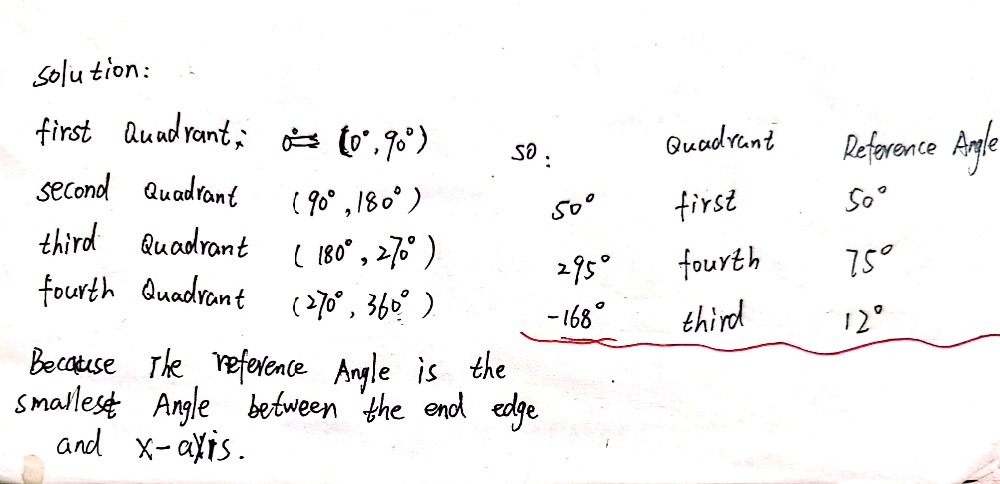 solution:
first Quadrant: (0°, 90°)
second Quadrant (90°, 180°)
third Quadrant (180°, 270°)
fourth Quadrant (270°, 360°)
Because The reference Angle is the
smallest Angle between the end edge
and x-axis.
so: Quadrant Reference Angle
50° first 50°
295° fourth 75°
-168° third 12°